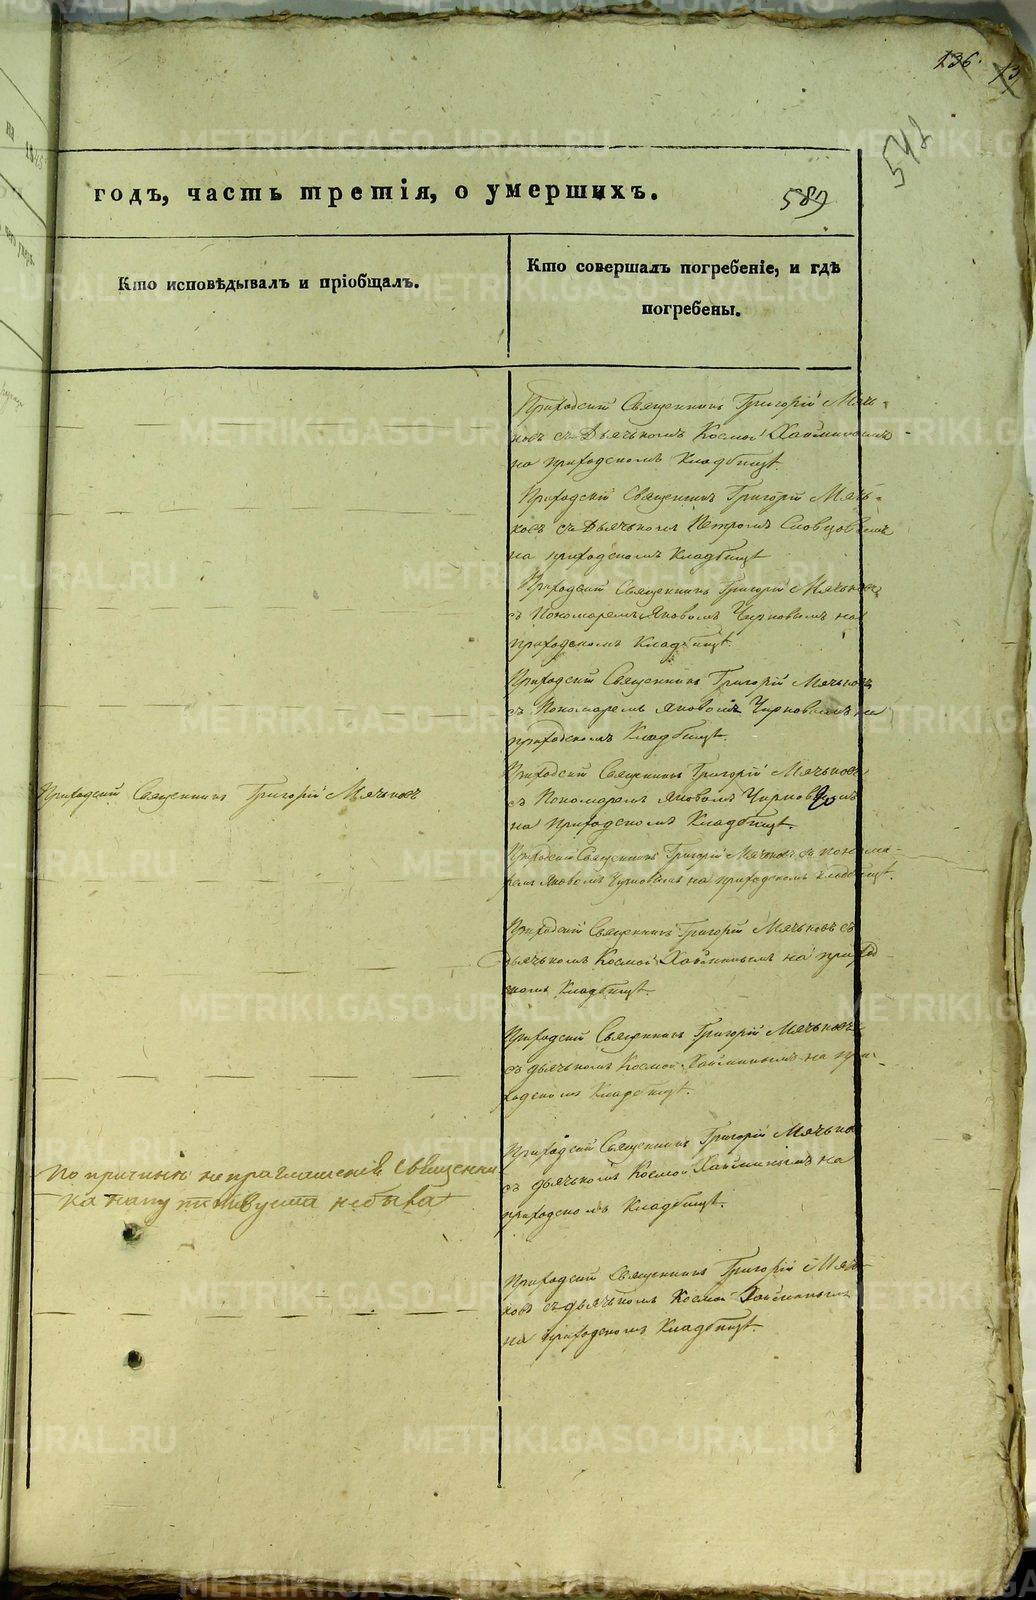 136.
542
годъ, часть третія, о умершихъ.
589
Кто исповѣдывалъ и пріобщалъ.
Кто совершалъ погребеніе, и гдѣ
погребены.
Приходскій Священникъ Григорій Мячь-
ковъ съ Дьячькомъ Космой
на приходскомъ Кладбищѣ
Приходскій Священникъ Григорій Мячь-
ковъ съ Дьячькомъ Петромъ Словцовымъ
на приходскомъ Кладбищѣ
Приходскій Священникъ Григорій Мячьковъ
съ Пономаремъ Яковомъ Чирновымъ на
приходскомъ Кладбищѣ.
Приходскій Священникъ Григорій Мячьковъ
съ Пономаремъ Яковомъ Чирновымъ на
приходскомъ Кладбищѣ.
Приходскій Священникъ Григорій Мячьковъ
Приходскій Священникъ Григорій Мячьковъ
съ Пономаремъ Яковомъ Чирновымъ
на приходскомъ Кладбищѣ.
Приходскій Священникъ Григорій Мячьковъ съ понома-
ремъ Яковомъ Чирновымъ на приходскомъ кладбищѣ.
Приходскій Священникъ Григорій Мячьковъ съ
дьячькомъ Космой на приход-
скомъ Кладбищѣ.
Приходскій Священникъ Григорій Мячьковъ
съ дьячькомъ Космой на при-
ходскомъ Кладбищѣ.
Приходскій Священникъ Григорій Мячьков
съ дьячькомъ Космой на
приходскомъ Кладбищѣ.
По причинѣ не приглашенія Священни
ка
Приходскій Священникъ Григорій Мячь-
ковъ съ дьячькомъ Космой
на приходскомъ Кладбищѣ.
METRIKI.GASO-URAL.RU